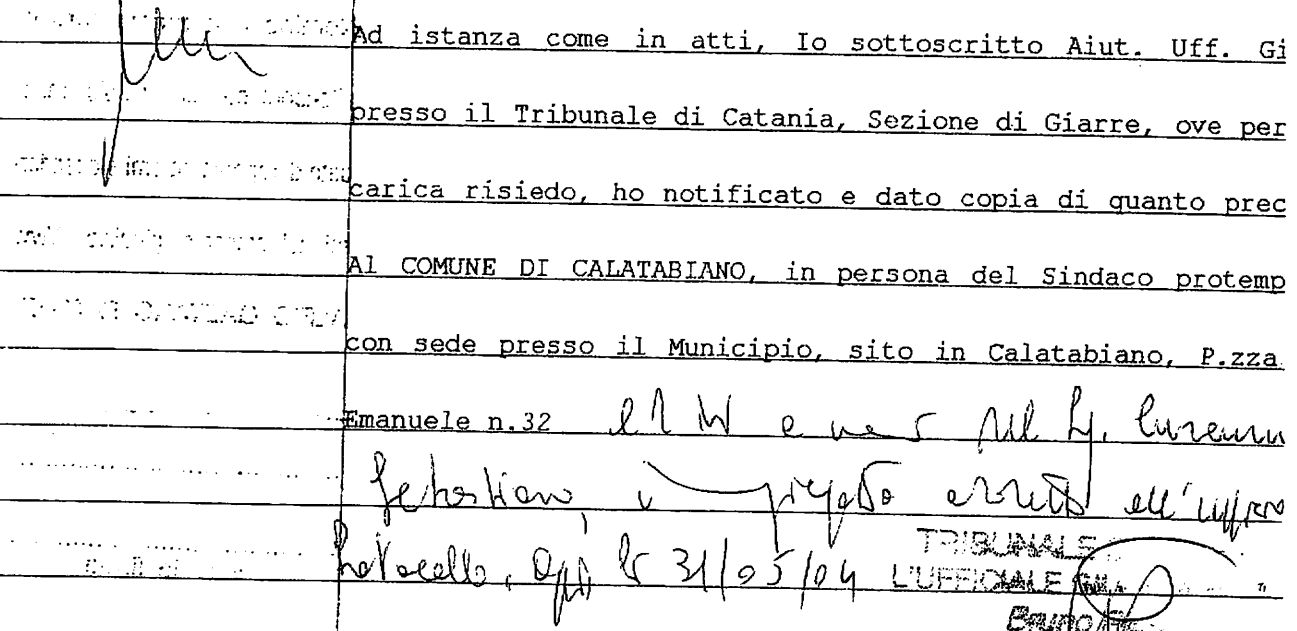 Ad istanza come in atti, Io sottoscritto Aiut. Uff. Gi
presso il Tribunale di Catania, Sezione di Giarre, ove per
carica risiedo, ho notificato e dato copia di quanto prec
Al COMUNE DI CALATABIANO, in persona del Sindaco protemp
con sede presso il Municipio, sito in Calatabiano, P.zza
Emanuele n.32
Sebastiano, impiegato addetto all'ufficio
Protocollo, Oggi 31/05/04
TRIBUNALE
L'UFFICIALE
Bruno